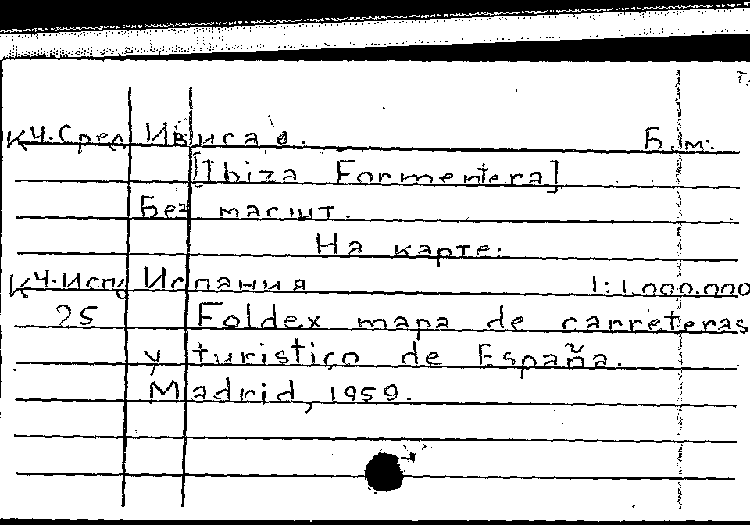 К4.Сред Ивиса о. Б.м.
[Ibiza Formentera]
Без масшт.
На карте:
К4.Исп Испания 1:1.000.000
25 Foldex mapa de carreteras
y turistico de España.
Madrid, 1959.